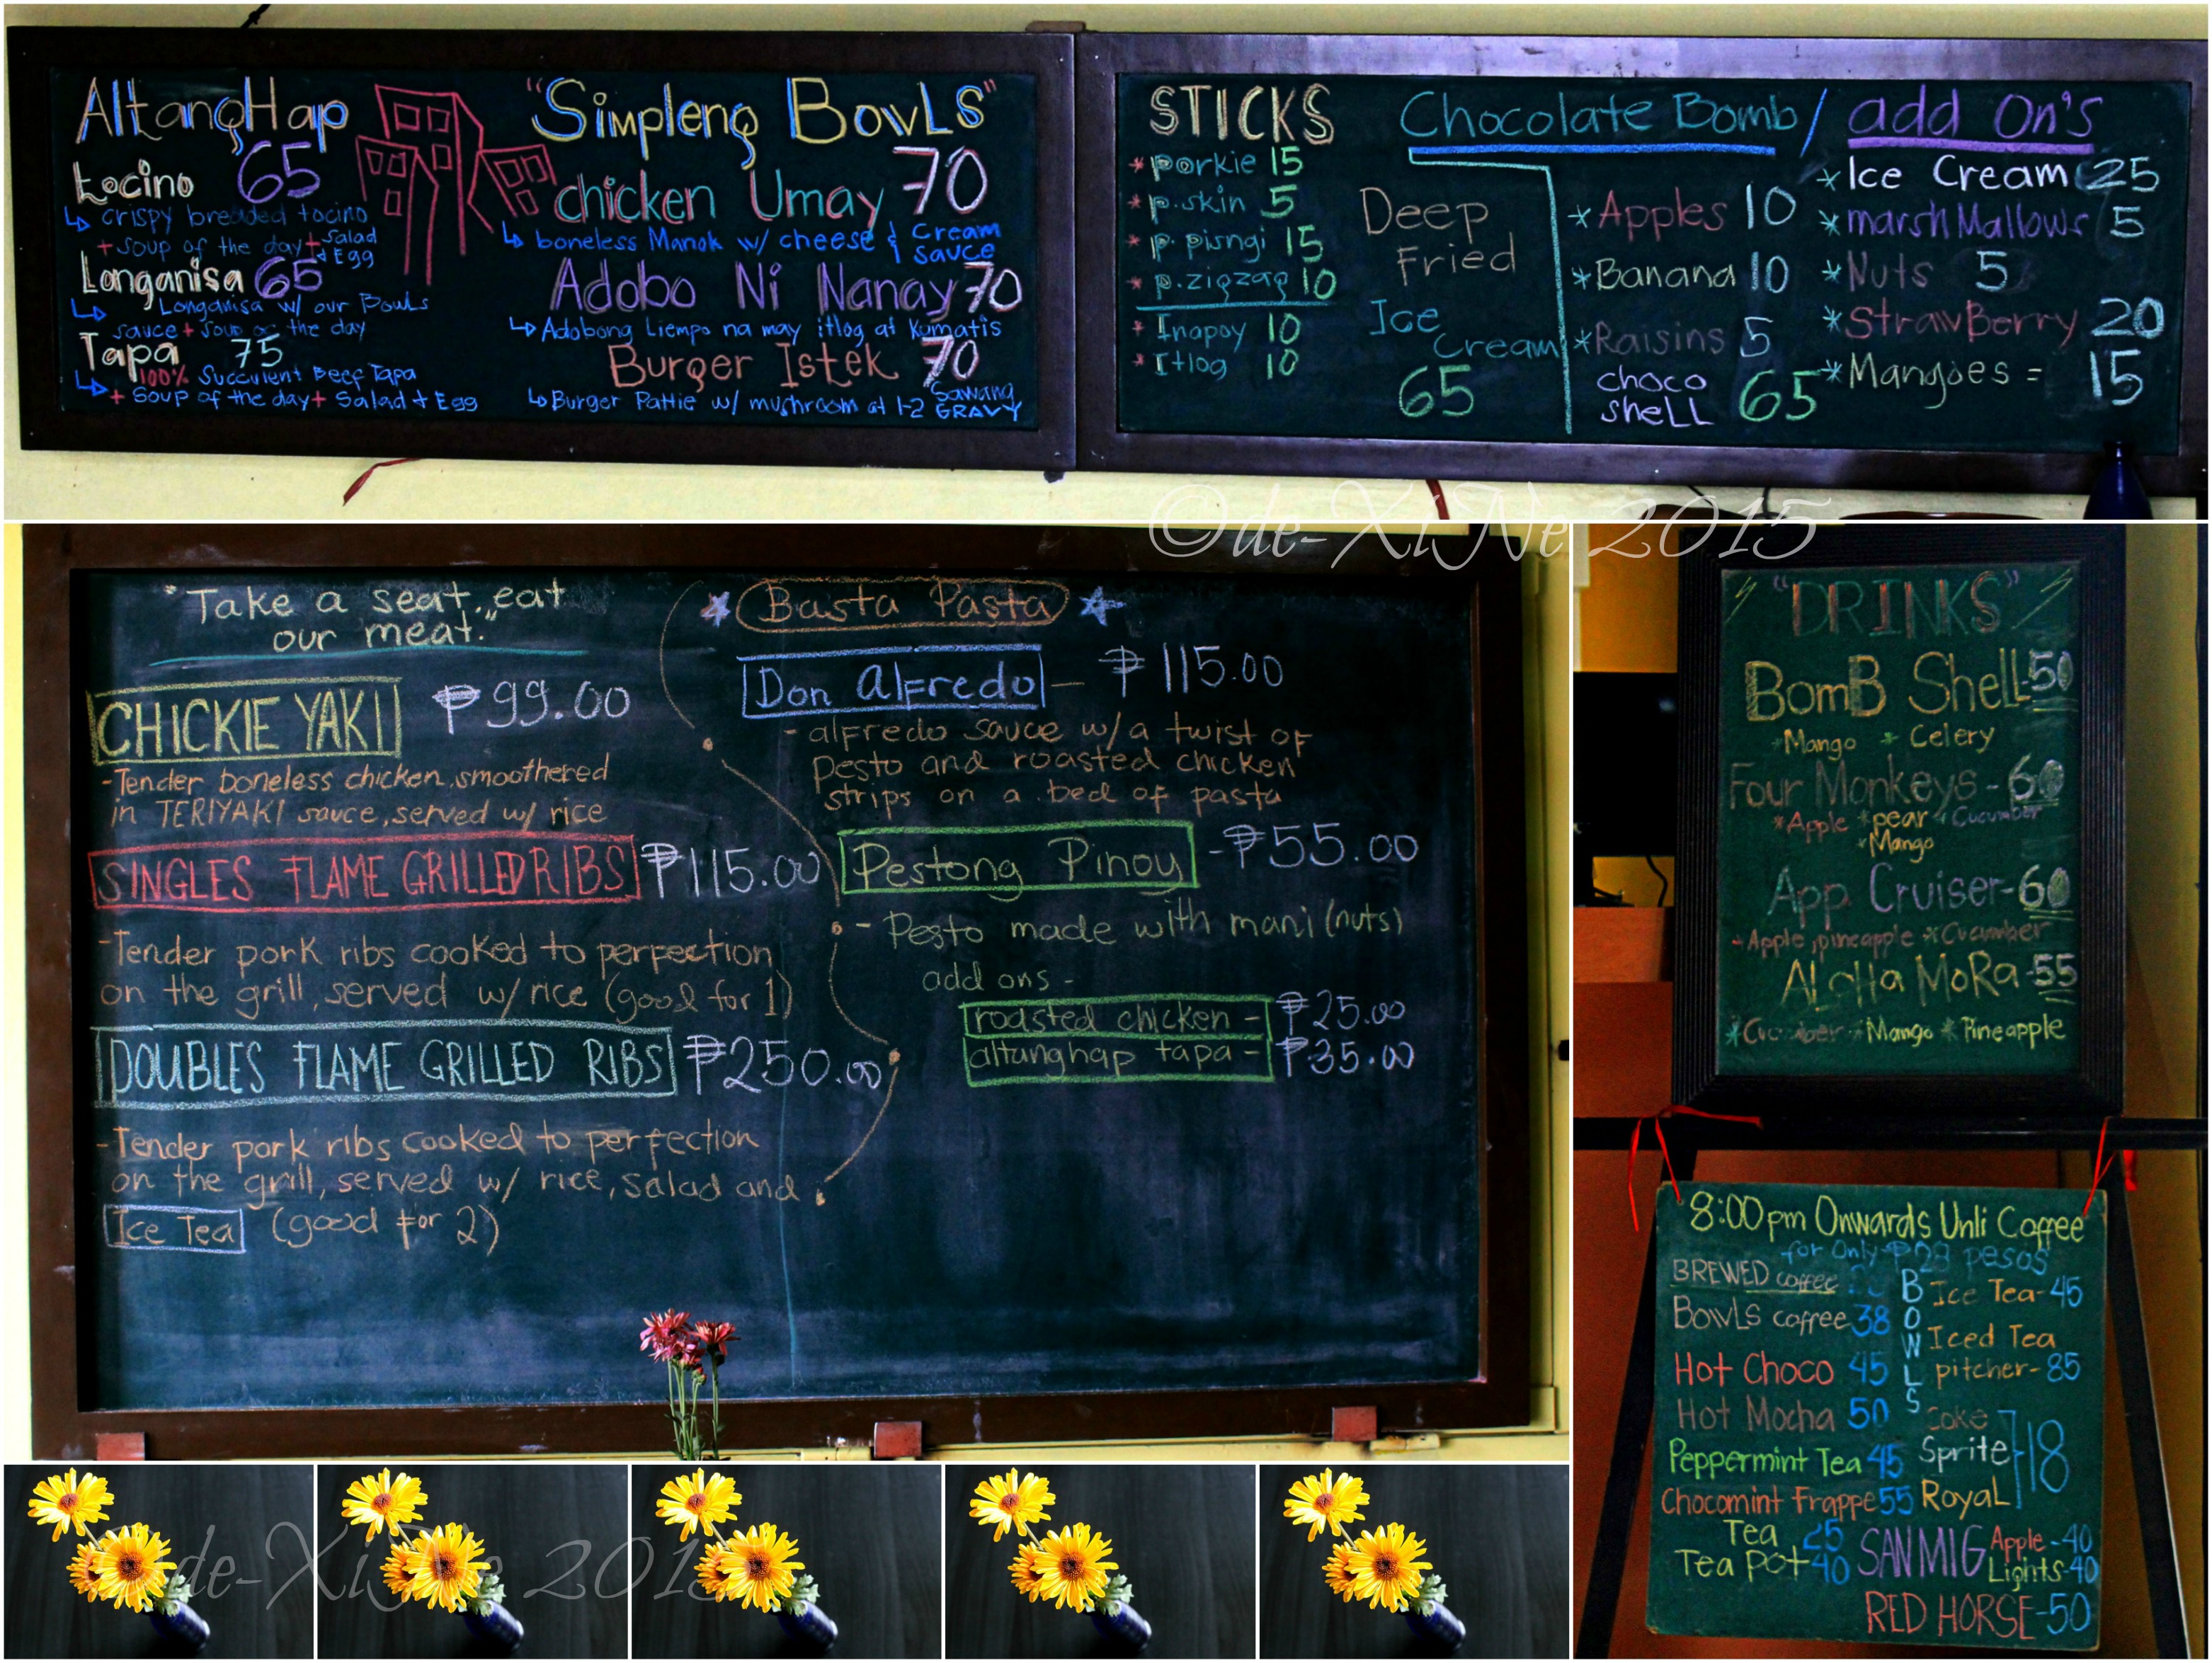 AltangHap
tocino 65
crispy breaded tocino
+ soup of the day + Salad
+ Egg
Longanisa 65
Longanisa w/ our Bowls
sauce + soup of the day
Tapa 75
100% Succulent Beef Tapa
+ Soup of the day + Salad + Egg
"Simpleng BowLS"
chicken Umay 70
boneless Manok w/ cheese & Cream
sauce
Adobo Ni Nanay 70
Adobong Liempo na may itlog at Kamatis
Burger Istek 70
Burger Pattie w/ mushroom at 1-2 Sawang
GRAVY
STICKS
* porkie 15
* p.skin 5
* p. pisngi 15
* p.zigzag 10
* Inapoy 10
* Itlog 10
Chocolate Bomb / add On's
Deep
Fried
Ice
Cream
65
* Apples 10
* Banana 10
* Raisins 5
choco
sheLL 65
* Ice Cream 25
* marshMallows 5
* Nuts 5
* StrawBerry 20
* Mangoes = 15
©de-XiNe 2015
"Take a seat.,eat
our meat."
CHICKIE YAKI ₱99.00
-Tender boneless chicken, smoothered
in TERIYAKI sauce, served w/ rice
SINGLES FLAME GRILLED RIBS ₱115.00
-Tender pork ribs cooked to perfection
on the grill, served w/ rice (good for 1)
DOUBLES FLAME GRILLED RIBS ₱250.00
-Tender pork ribs cooked to perfection
on the grill, served w/ rice, salad and
Ice Tea (good for 2)
Basta Pasta
Don Alfredo — ₱115.00
- alfredo sauce w/ a twist of
pesto and roasted chicken
strips on a bed of pasta
Pestong Pinoy - ₱55.00
- Pesto made with mani (nuts)
add ons -
roasted chicken - ₱25.00
altanghap tapa - ₱35.00
"DRINKS"
BomB SheLL-50
*Mango * Celery
Four Monkeys - 60
*Apple *pear *Cucumber
*Mango
App Cruiser-60
-Apple, pineapple *Cucumber
ALoHa MoRa-55
*Cucumber *Mango *Pineapple
8:00pm Onwards Unli Coffee
for Only ₱28 pesos
BREWED coffee
BowLS coffee 38
Hot Choco 45
Hot Mocha 50
Peppermint Tea 45
Chocomint Frappe 55
Tea 25
Tea Pot 40
BOWLS
Ice Tea-45
Iced Tea
pitcher-85
Coke
Sprite 18
Royal
SAN MIG Apple -40
Lights-40
RED HORSE-50
de-XiNe 2015